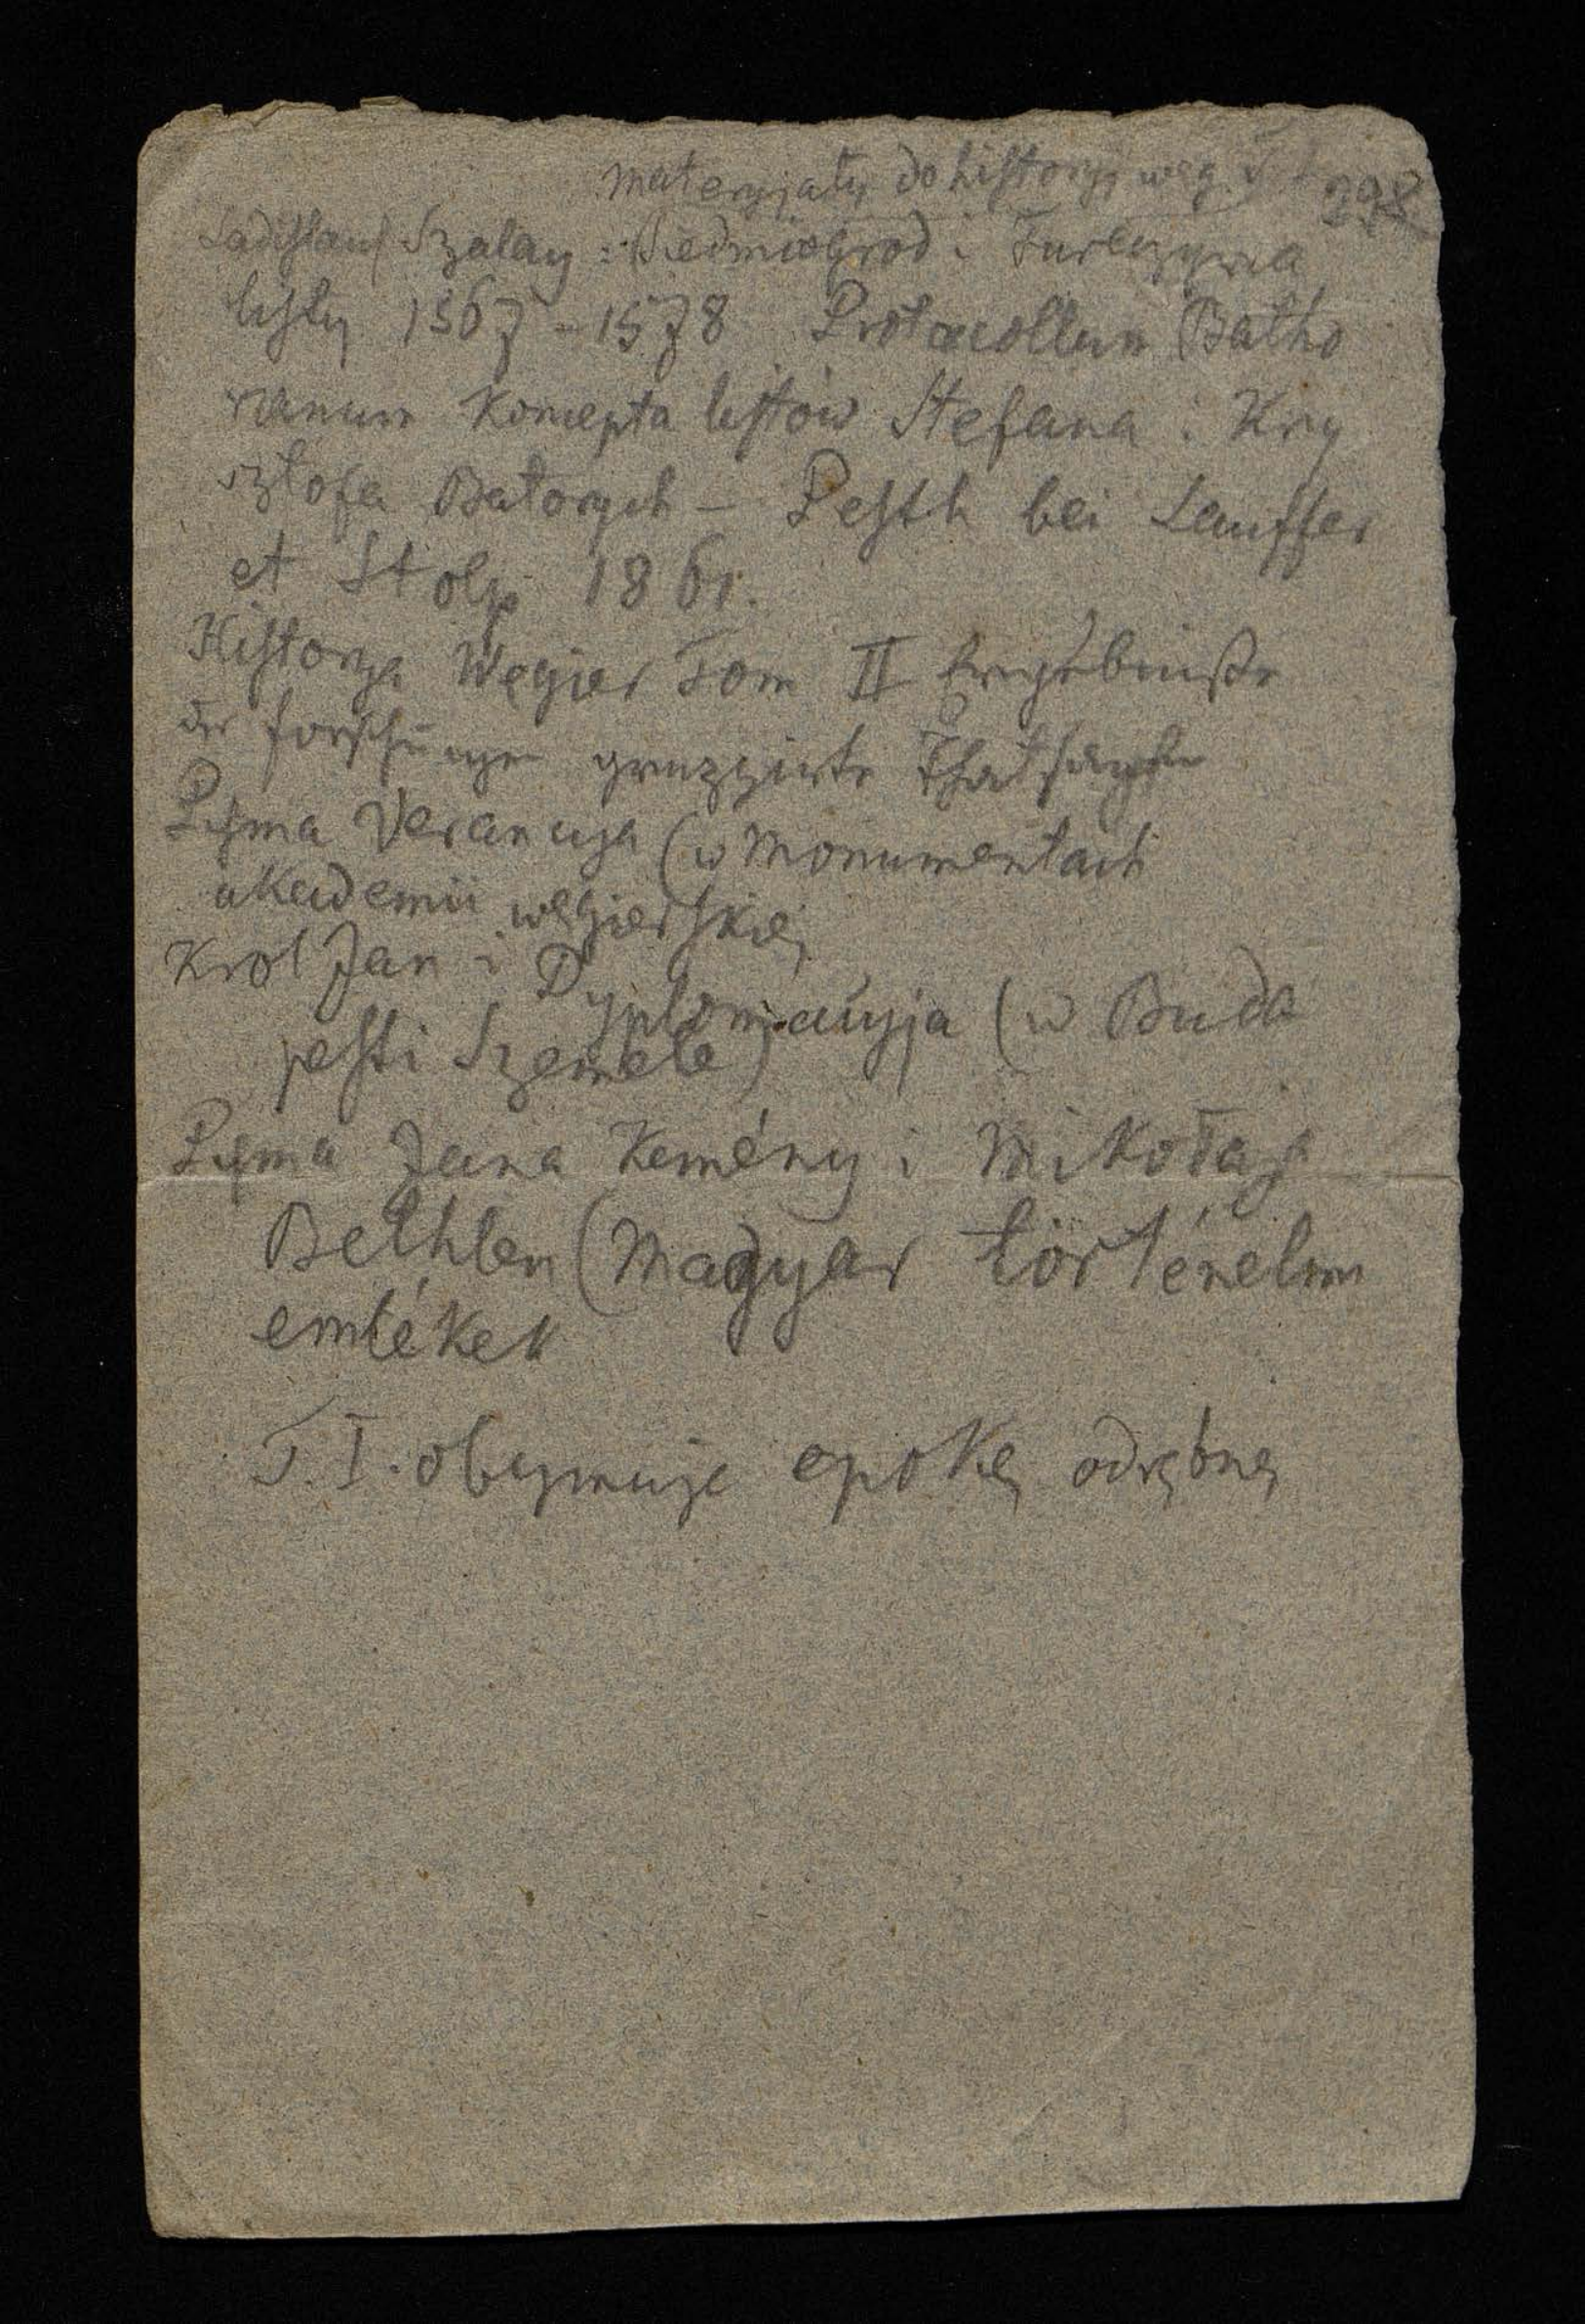 materyjały do historyi węg.
298
Ladislaus Szalay: Siedmiogrod i Turcyja
listy 1567 - 1578 Protocollum Batho
rianum Koncepta listów Stefana i Kry
sztofa Batorych - Pesth bei Lauffer
et Stolp 1861.
Historya Węgier Tom II Ergebniße
der Forschungen gruppirte Thatsachen
Pisma Verancyja (w Monumentach
akademii węgierskiéj
Krol Jan i Dyplomacyja (w Buda
pesti Szemele)
Pisma Jana Kemény i Mikołaja
Bethlen (Magyar történelmi
emlékek
T. I. obejmuje epokę odrębną